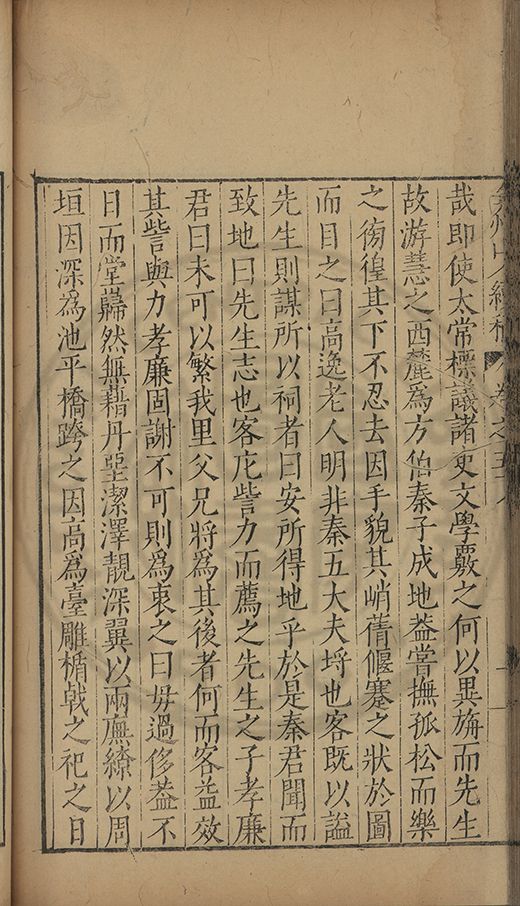 弇州山人續稿 卷之五十八
哉即使太常標議諸吏文學覈之何以異旃而先生
故游慧之西麓為方伯秦子成地葢嘗撫孤松而樂
之徬徨其下不忍去因手貌其峭蒨偃蹇之狀於圖
而目之曰高逸老人明非秦五大夫埒也客既以謚
先生則謀所以祠者曰安所得地乎於是秦君聞而
致地曰先生志也客庀訾力而薦之先生之子孝廉
君曰未可以繁我里父兄將為其後者何而客益效
其訾與力孝廉固謝不可則為衷之曰毋過侈葢不
日而堂巋然無藉丹堊潔澤靚深翼以兩廡繚以周
垣因深為池平橋跨之因高為臺雕楯戟之祀之日